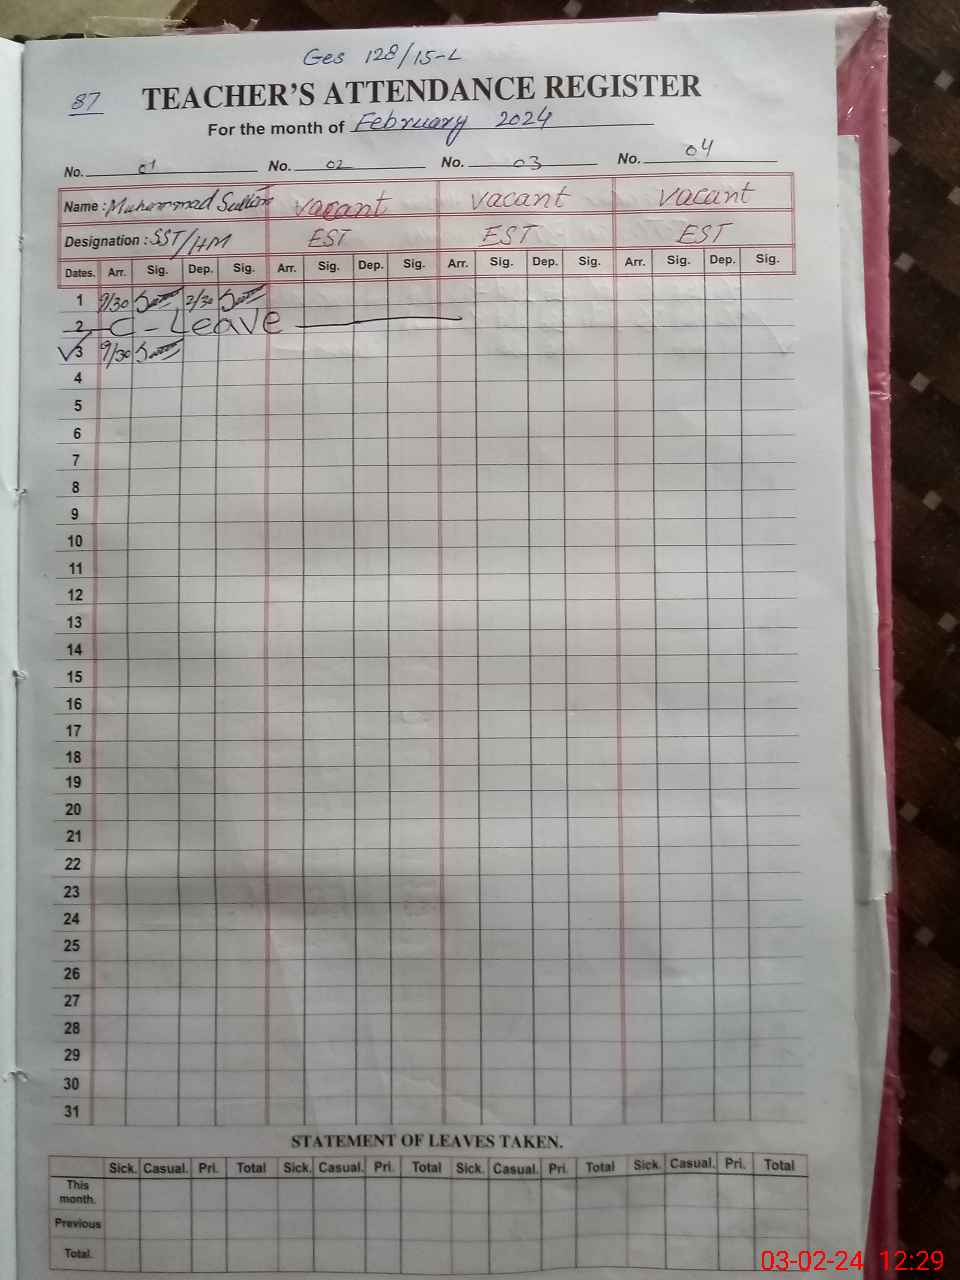 Ges 128/15-L
87 TEACHER'S ATTENDANCE REGISTER
For the month of February 2024
No. 01 No. 02 No. 03 No. 04
Name : Muhammad vacant vacant vacant
Designation : SST/HM EST EST EST
Dates. Arr. Sig. Dep. Sig. Arr. Sig. Dep. Sig. Arr. Sig. Dep. Sig. Arr. Sig. Dep. Sig.
1 9/30 2/30
2 C - Leave
3 9/30
4
5
6
7
8
9
10
11
12
13
14
15
16
17
18
19
20
21
22
23
24
25
26
27
28
29
30
31
STATEMENT OF LEAVES TAKEN.
Sick. Casual. Pri. Total Sick. Casual. Pri. Total Sick. Casual. Pri. Total Sick. Casual. Pri. Total
This
month.
Previous
Total.
03-02-24 12:29